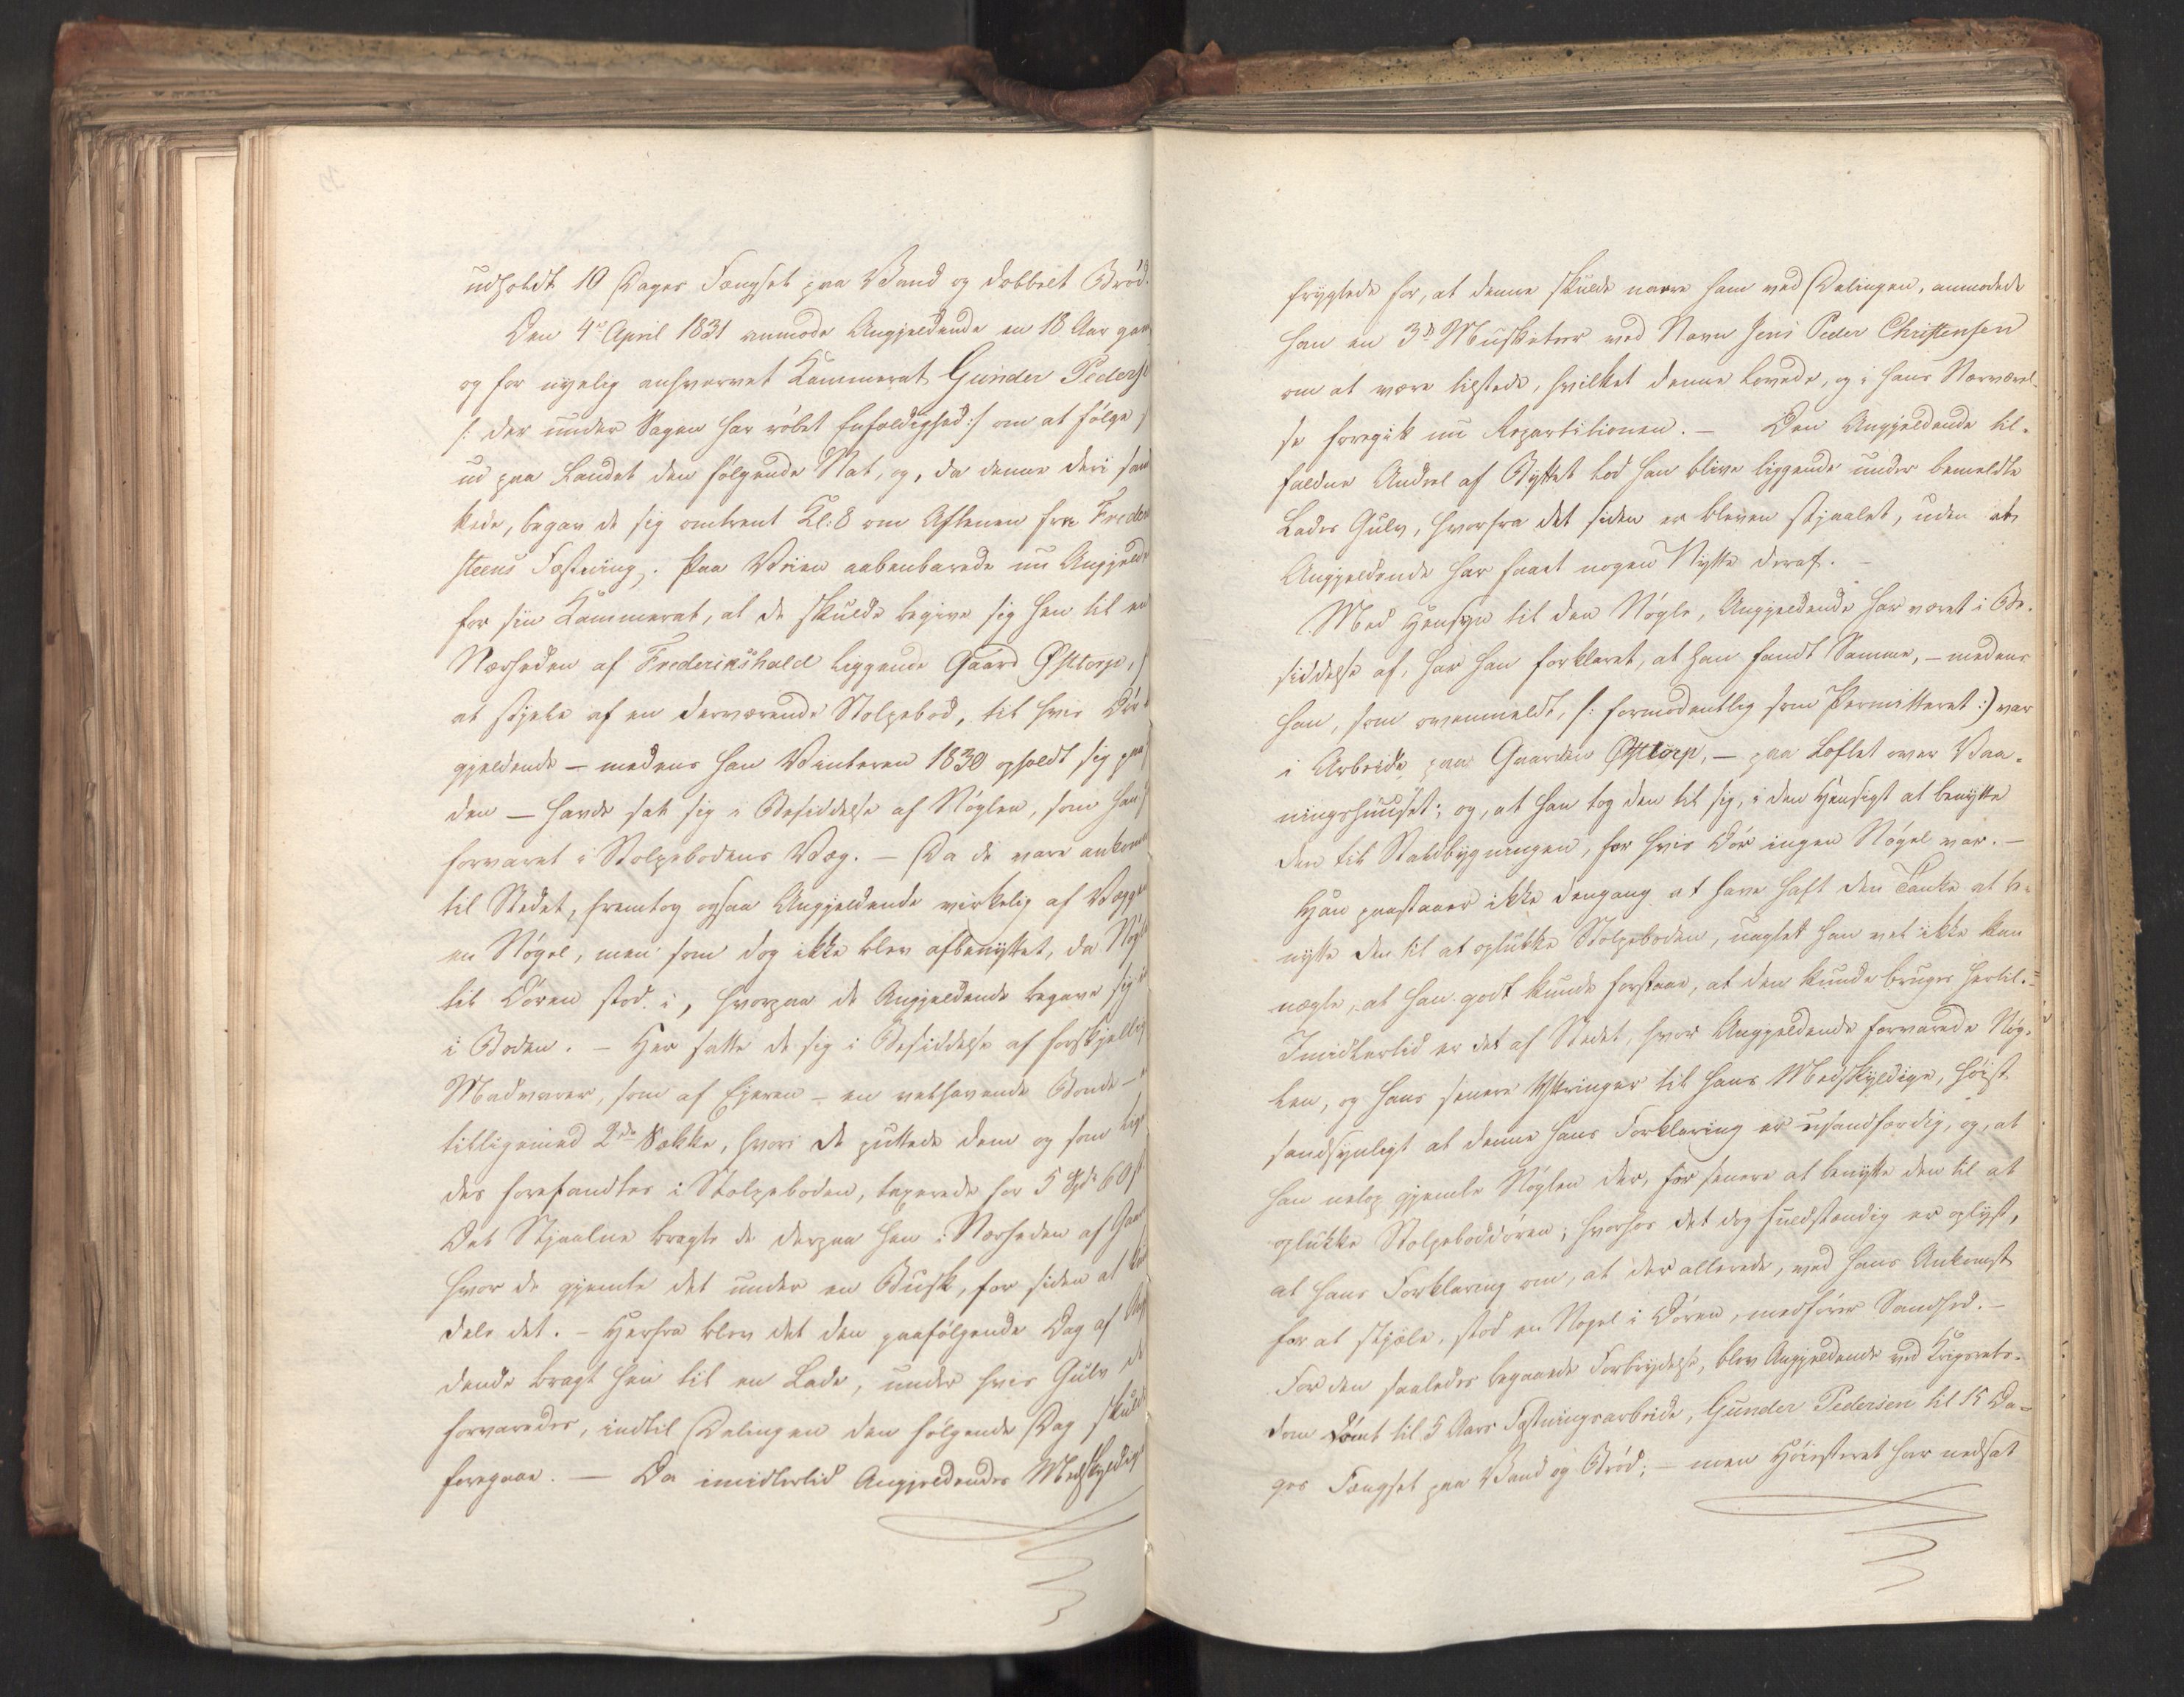 udholdt 10 Dages Fængsel paa Vand og dobbelt Brød.
Den 4de April 1831 anmode Angjældende en 18 Aar gam
og for nyelig anhvervet Kammerat Gunder Pederse
/: der under Sagen har røbet Enfoldighed :/ om at følge
ud paa Landet den følgende Nat, og, da denne deri sam
kede, begav de sig omtrent Kl: 8 om Aftenen fra Freder
steens Fæstning. Paa Veien aabenbarede nu Angjelde
for sin Kammerat, at de skulde begive sig hen til en
Nærheden af Frederikshald liggende Gaard Østtorp,
at stjele af en derværende Stolpebod, til hvis Dør
gjeldende – medens han Vinteren 1830 opholdt sig paa
den – havde sat sig i Besiddelse af Nøglen, som han
forvaret i Stolpebodens Væg. – Da de vare ankom
til Stedet, fremtog ogsaa Angjeldende virkelig af Vægge
en Nøgel, men som dog ikke blev afbenyttet, da Nøgle
til Døren stod i, hvorpaa de Angjeldende begave sig i
i Boden. – Her satte de sig i Besiddelse af forskjellig
Madvarer, som af Ejeren – en velhavende Bonde –
tilligemed 2de Sække, hvori de puttede dem og som lig
des forefandtes i Stolpeboden, taxerede for 5 Spd 60 s
Det Stjaalne bragte de derpaa hen i Nærheden af Gaar
hvor de gjemte det under en Busk, for siden at
dele det. – Herfra blev det den paafølgende Dag af Ang
dende bragt hen til en Lade, under hvis Gulv de
forvaredes, indtil Delingen den følgende Dag skuld
foregaae. – Da imidlertid Angjeldendes Medskyldig
frygtede for, at denne skulde narre ham ved Delingen, anmodede
han en 3de Musketeer ved Navn Jens Peder Christensen
om at være tilstede, hvilket denne lovede, og i hans Nærværel
se foregik nu Repartitionen. – Den Angjeldende til-
faldne Andeel af Byttet lod han blive liggende under bemeldte
Lades Gulv, hvorfra det siden er bleven stjaalet, uden at
Angjeldende har faaet nogen Nytte deraf. –
Med Hensyn til den Nøgle, Angjeldende har været i Be-
siddelse af, har han forklaret, at han fandt Samme, – medens
han, som ovenmeldt, /: formodentlig som Permitteret :/ var
i Arbeide paa Gaarden Østtorp, – paa Loftet over Vaa-
ningshuuset; og, at han tog den til sig, i den Hensigt at benytte
den til Staldbygningen, for hvis Dør ingen Nøgel var. –
Han paastaaer ikke dengang at have haft den Tanke at be-
nytte den til at oplukke Stolpeboden, uagtet han vel ikke kan
nægte, at han godt kunde forstaae, at den kunde bruges hertil. –
Imidlertid er det af Stedet, hvor Angjeldende forvarede Nøg-
len, og hans senere Yttringer til hans Medskyldige, høist
sandsynligt at denne hans Forklaring er usandfærdig, og, at
han netop gjemte Nøglen der, for senere at benytte den til at
oplukke Stolpeboddøren; hvorhos det dog fuldstændig er oplyst,
at hans Forklaring om, at der allerede, ved hans Ankomst
for at stjæle, stod en Nøgel i Døren, medfører Sandhed. –
For den saaledes begaaede Forbrydelse, blev Angjeldende ved Krigsrets-
dom dømt til 5 Aars Fæstningsarbeide, Gunder Pedersen til 15 Da-
ges Fængsel paa Vand og Brød; – men Høiesteret har nedsat